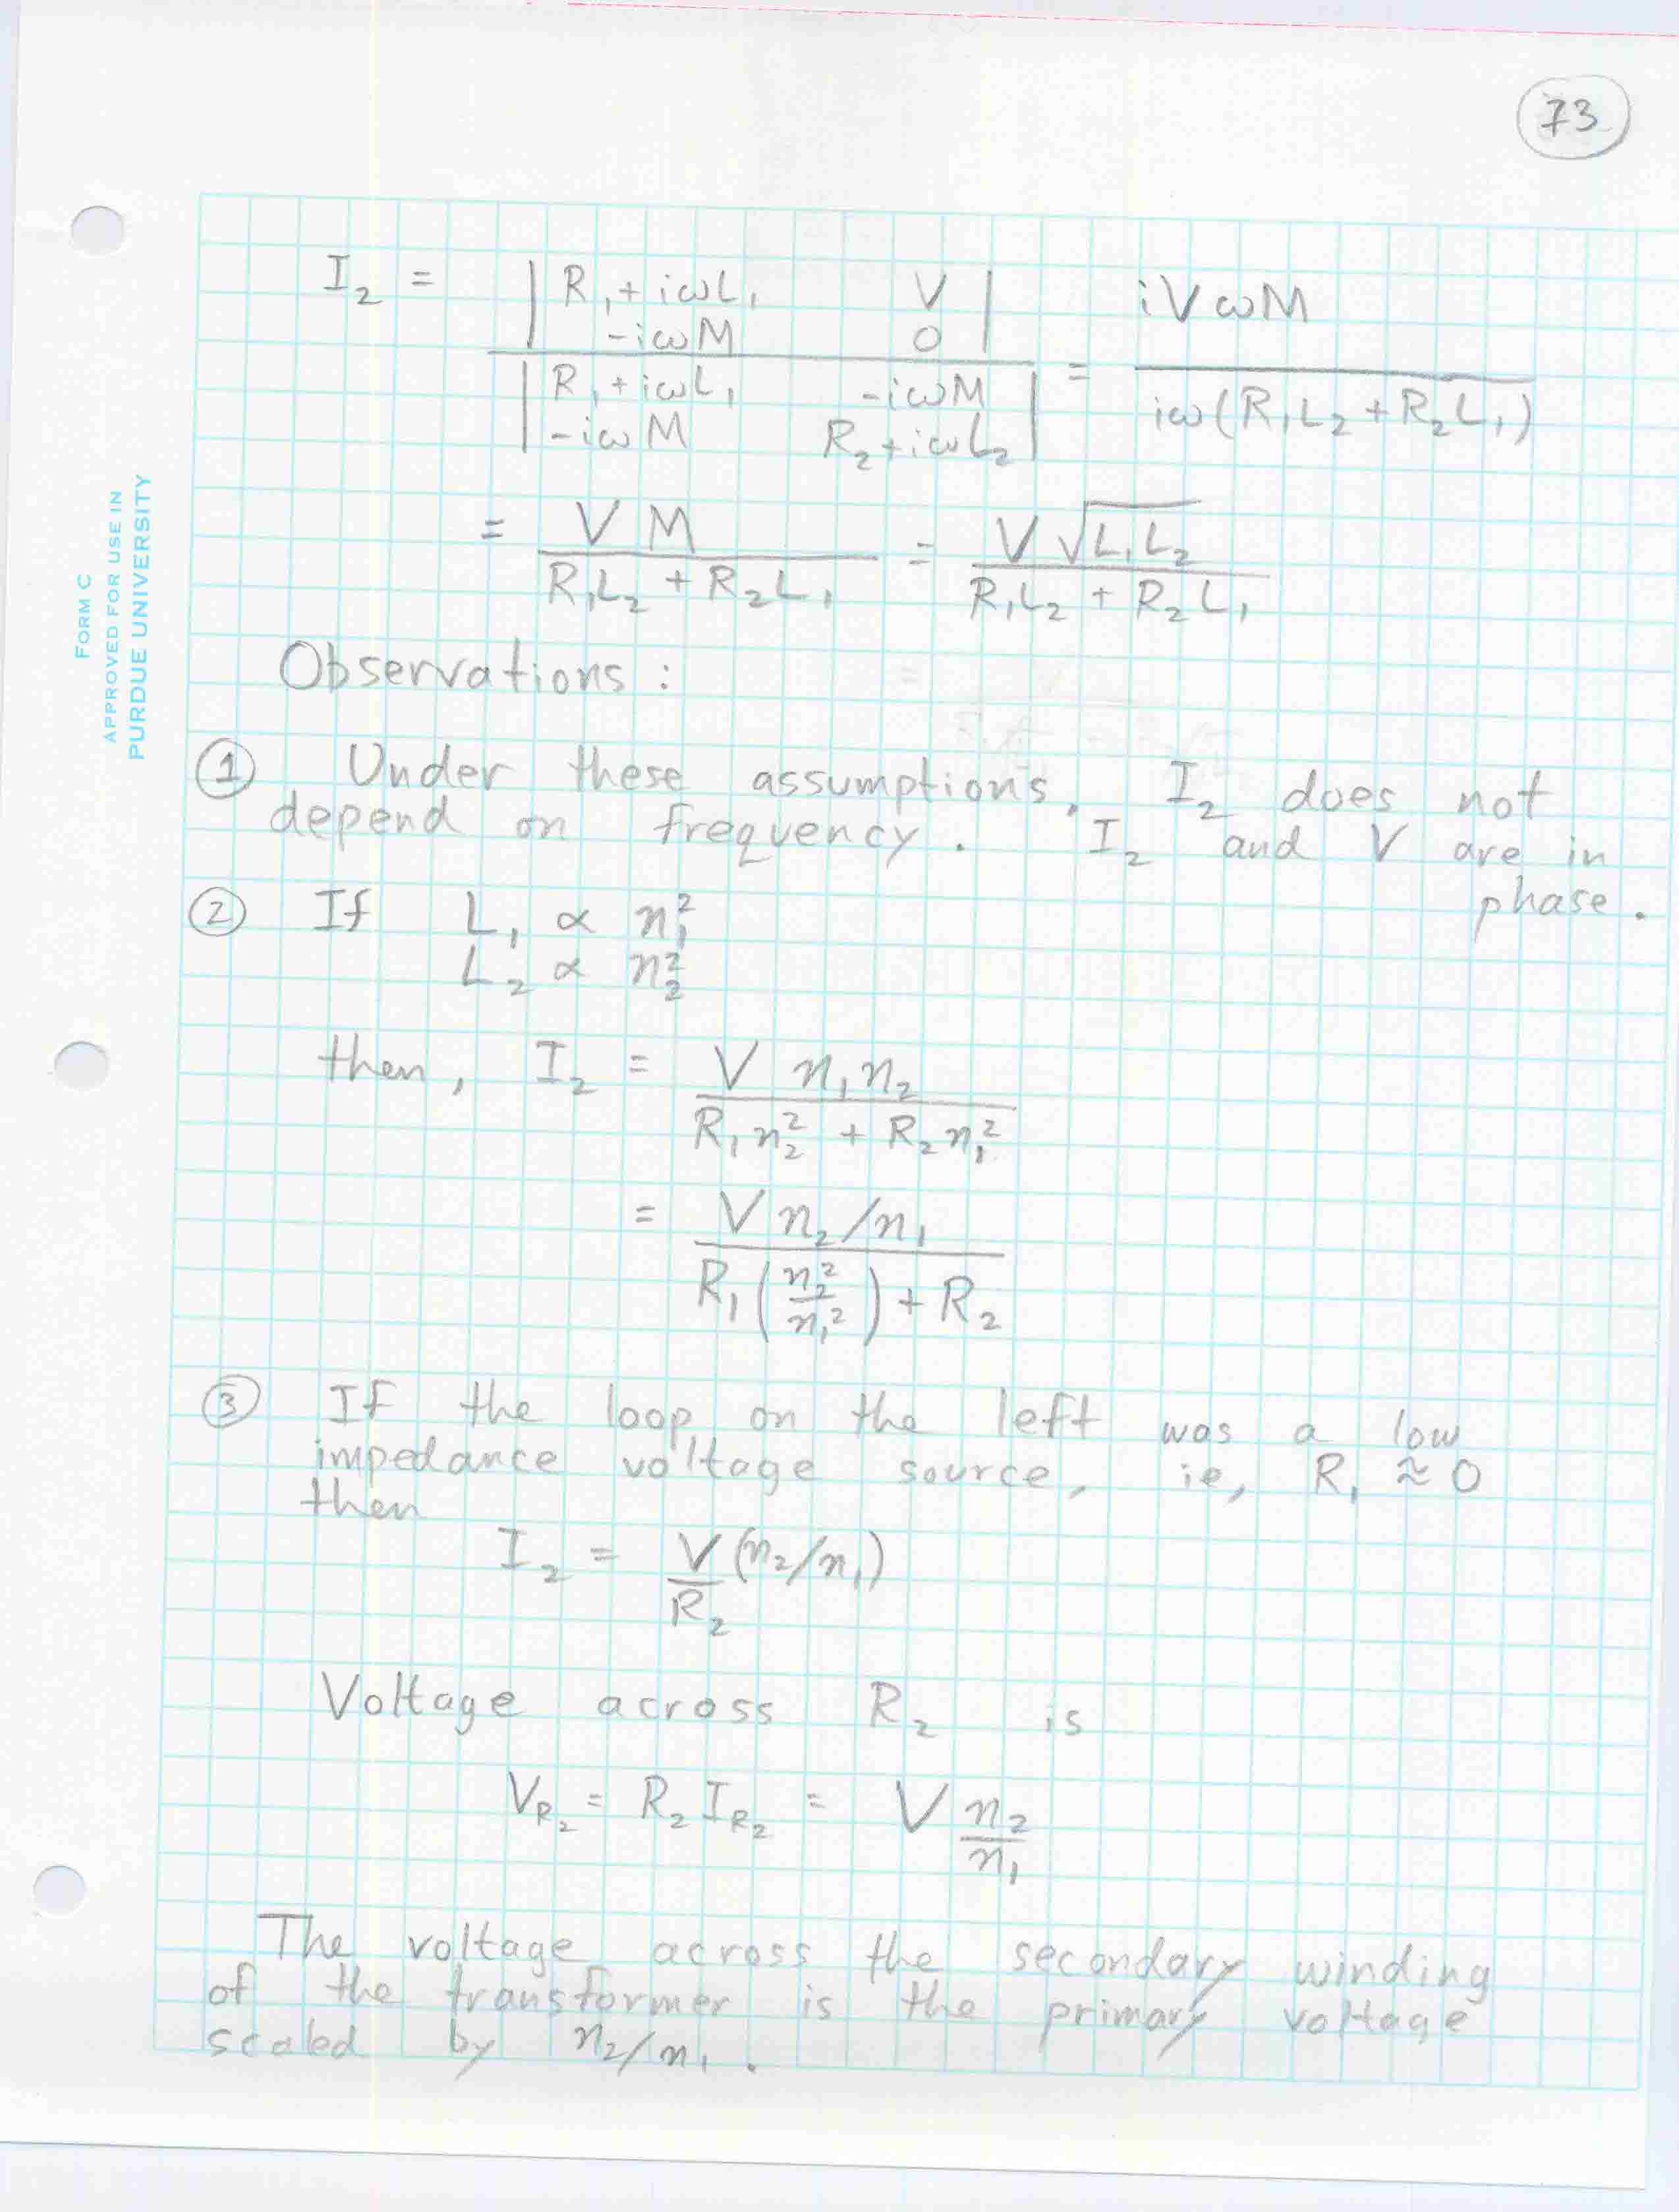 73
I₂ = | R₁ + iωL₁   V |
     | -iωM   0 | / | R₁ + iωL₁   -iωM |
     | -iωM   R₂ + iωL₂ | = iVωM / iω(R₁L₂ + R₂L₁)
= V M / R₁L₂ + R₂L₁ = V √L₁L₂ / R₁L₂ + R₂L₁
FORM C
APPROVED FOR USE IN
PURDUE UNIVERSITY
Observations :
① Under these assumptions, I₂ does not
depend on frequency. I₂ and V are in
phase.
② If L₁ ∝ n₁²
L₂ ∝ n₂²
then, I₂ = V n₁n₂ / R₁n₂² + R₂n₁²
= V n₂/n₁ / R₁(n₂²/n₁²) + R₂
③ If the loop on the left was a low
impedance voltage source, ie, R₁ ≈ 0
then
I₂ = V/R₂ (n₂/n₁)
Voltage across R₂ is
V_R₂ = R₂ I_R₂ = V n₂/n₁
The voltage across the secondary winding
of the transformer is the primary voltage
scaled by n₂/n₁.